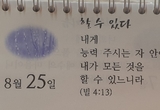 할 수 있다
내게
능력 주시는 자 안
내가 모든 것을
할 수 있느니라
(빌 4:13)
8월 25일